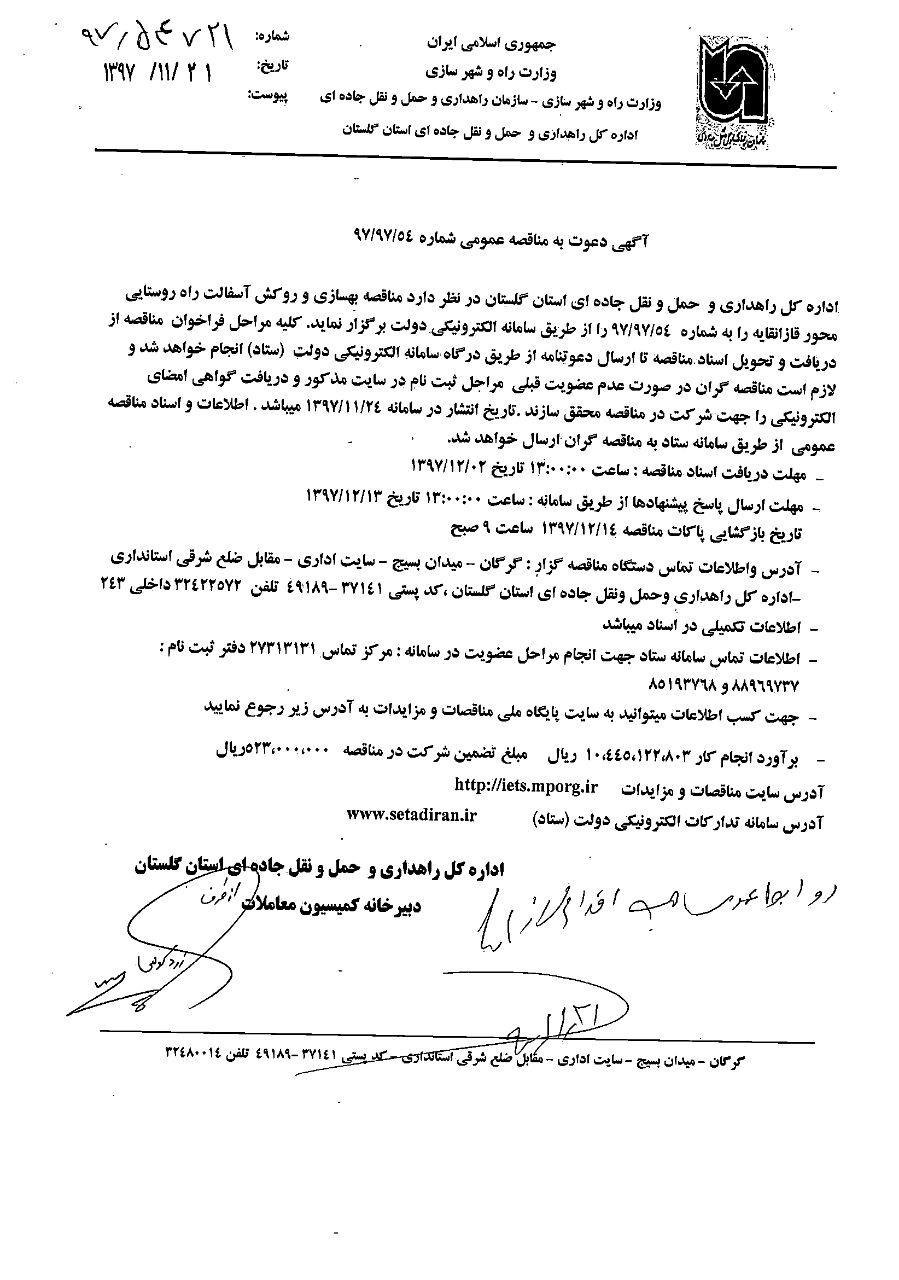 جمهوری اسلامی ایران
وزارت راه و شهر سازی
وزارت راه و شهر سازی - سازمان راهداری و حمل و نقل جاده ای
اداره کل راهداری و حمل و نقل جاده ای استان گلستان
شماره: ۹۷/۵۴۷۲۱
تاریخ: ۱۳۹۷/۱۱/۲۱
پیوست:
آگهی دعوت به مناقصه عمومی شماره ۹۷/۹۷/۵۴
اداره کل راهداری و حمل و نقل جاده ای استان گلستان در نظر دارد مناقصه بهسازی و روکش آسفالت راه روستایی
محور قازانقایه را به شماره ۹۷/۹۷/۵۴ را از طریق سامانه الکترونیکی دولت برگزار نماید. کلیه مراحل فراخوان مناقصه از
دریافت و تحویل اسناد مناقصه تا ارسال دعوتنامه از طریق درگاه سامانه الکترونیکی دولت (ستاد) انجام خواهد شد و
لازم است مناقصه گران در صورت عدم عضویت قبلی مراحل ثبت نام در سایت مذکور و دریافت گواهی امضای
الکترونیکی را جهت شرکت در مناقصه محقق سازند .تاریخ انتشار در سامانه ۱۳۹۷/۱۱/۲۴ میباشد . اطلاعات و اسناد مناقصه
عمومی از طریق سامانه ستاد به مناقصه گران ارسال خواهد شد.
- مهلت دریافت اسناد مناقصه : ساعت ۱۳:۰۰:۰۰ تاریخ ۱۳۹۷/۱۲/۰۲
- مهلت ارسال پاسخ پیشنهادها از طریق سامانه : ساعت ۱۳:۰۰:۰۰ تاریخ ۱۳۹۷/۱۲/۱۳
تاریخ بازگشایی پاکات مناقصه ۱۳۹۷/۱۲/۱۴ ساعت ۹ صبح
- آدرس واطلاعات تماس دستگاه مناقصه گزار : گرگان - میدان بسیج - سایت اداری - مقابل ضلع شرقی استانداری
-اداره کل راهداری وحمل ونقل جاده ای استان گلستان ،کد پستی ۳۷۱۴۱-۴۹۱۸۹ تلفن ۳۲۴۲۲۵۷۲ داخلی ۲۴۳
- اطلاعات تکمیلی در اسناد میباشد
- اطلاعات تماس سامانه ستاد جهت انجام مراحل عضویت در سامانه : مرکز تماس ۲۷۳۱۳۱۳۱ دفتر ثبت نام :
۸۸۹۶۹۷۳۷ و ۸۵۱۹۳۷۶۸
- جهت کسب اطلاعات میتوانید به سایت پایگاه ملی مناقصات و مزایدات به آدرس زیر رجوع نمایید
- برآورد انجام کار ۱۰،۴۴۵،۱۲۲،۸۰۳ ریال مبلغ تضمین شرکت در مناقصه ۵۲۳،۰۰۰،۰۰۰ریال
آدرس سایت مناقصات و مزایدات http://iets.mporg.ir
آدرس سامانه تدارکات الکترونیکی دولت (ستاد) www.setadiran.ir
اداره کل راهداری و حمل و نقل جاده ای استان گلستان
دبیرخانه کمیسیون معاملات
از طرف
گرگان - میدان بسیج - سایت اداری - مقابل ضلع شرقی استانداری - کد پستی ۳۷۱۴۱-۴۹۱۸۹ تلفن ۳۲۴۸۰۰۱۴